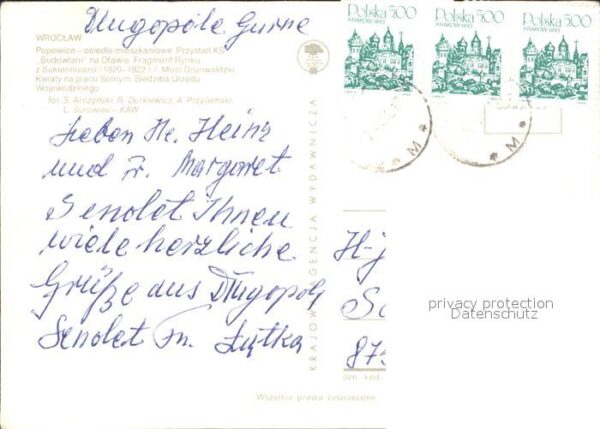 Długopole Gurne
WROCŁAW
Popowice – osiedla mieszkaniowe. Przystań KS
„Budowlani" na Oławie. Fragment Rynku
z Sukiennicami /1820–1822 r./ Most Grunwaldzki.
Kwiaty na placu Solnym. Siedziba Urzędu
Wojewódzkiego
fot. S. Arczyński, R. Dutkiewicz, A. Przyjemski,
L. Surowiec – KAW
Polska 5.00
KRAKÓW 1493
Polska 5.00
KRAKÓW 1493
Polska 5.00
KRAKÓW 1493
M
M
Lieben Hr. Heinz
und Fr. Margaret
Sendet Ihnen
viele herzliche
Grüße aus Długopole
Sendet Fr. Łytka
KRAJOWA AGENCJA WYDAWNICZA
H-j
Sc
873
ozn. kod.
privacy protection
Datenschutz
Wszelkie prawa zastrzeżone